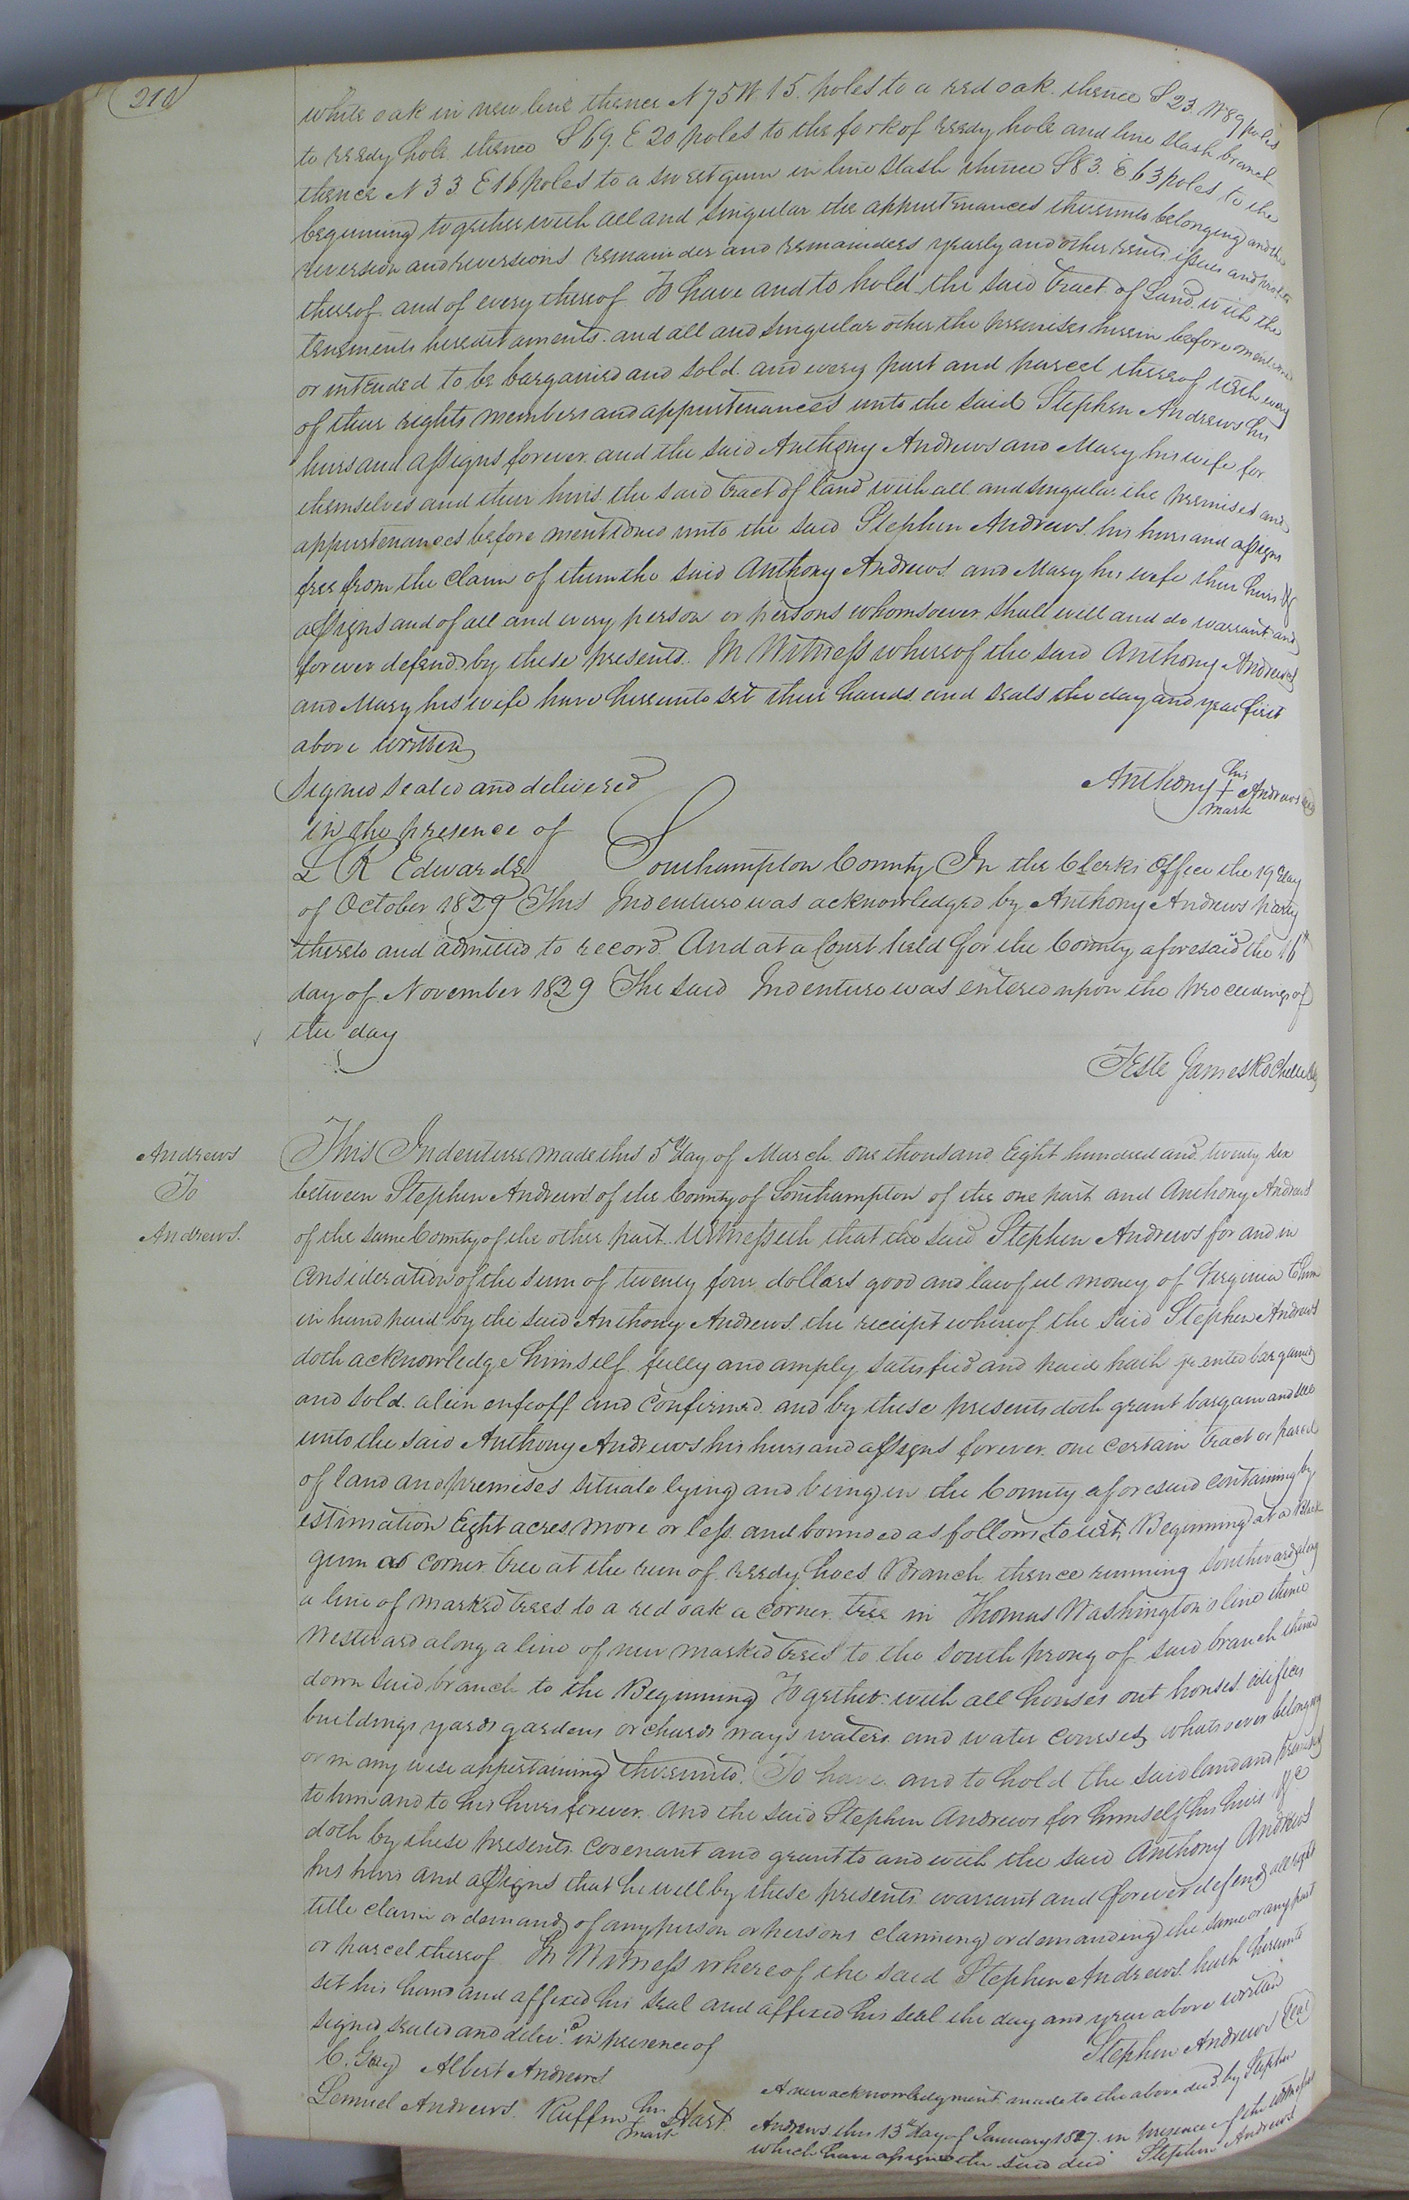 210
white oak in new line thence N 75 W 15 poles to a red oak thence S 23 W 89 poles
to reedy hole thence S 69 E 20 poles to the fork of reedy hole and line slash branch
thence N 33 E 16 poles to a sweet gum in line slash thence S 83 E 63 poles to the
beginning together with all and singular the appurtenances thereunto belonging and the
reversion and reversions remainder and remainders yearly and other rents issues and profits
thereof and of every thereof To have and to hold the said tract of Land with the
tenements hereditaments and all and singular other the premises herein before mentioned
or intended to be bargained and sold and every part and parcel thereof with every
of their rights members and appurtenances unto the said Stephen Andrews his
heirs and assigns forever and the said Anthony Andrews and Mary his wife for
themselves and their heirs the said tract of land with all and singular the premises and
appurtenances before mentioned unto the said Stephen Andrews his heirs and assigns
free from the claim of them the said Anthony Andrews and Mary his wife their heirs &c
assigns and of all and every person or persons whomsoever shall will and do warrant and
forever defend by these presents. In Witness whereof the said Anthony Andrews
and Mary his wife have hereunto set their hands and seals the day and year first
above written
Signed sealed and delivered
in the presence of
L R Edwards
his
Anthony + Andrews
mark
Southampton County In the Clerks Office the 19 day
of October 1829 This Indenture was acknowledged by Anthony Andrews party
thereto and admitted to record And at a Court held for the County aforesaid the 16th
day of November 1829 The said Indenture was entered upon the proceedings of
the day
Teste James Rochelle
Andrews
To
Andrews.
This Indenture made this 5 day of March one thousand Eight hundred and twenty six
between Stephen Andrews of the County of Southampton of the one part and Anthony Andrews
of the same County of the other part Witnesseth that the said Stephen Andrews for and in
consideration of the sum of twenty four dollars good and lawful money of Virginia to him
in hand paid by the said Anthony Andrews the receipt whereof the said Stephen Andrews
doth acknowledge himself fully and amply satisfied and paid hath granted bargained
and sold alien enfeoff and confirmed and by these presents doth grant bargain and sell
unto the said Anthony Andrews his heirs and assigns forever one certain tract or parcel
of land and premises situate lying and being in the County aforesaid containing by
estimation Eight acres more or less and bounded as follows to wit, Beginning at a Black
gum as corner tree at the run of reedy hoes Branch thence running southward along
a line of marked trees to a red oak a corner tree in Thomas Washington's line thence
Westward along a line of new marked trees to the south prong of said branch thence
down said branch to the Beginning Together with all houses out houses edifices
buildings yards gardens orchards ways waters and water courses whatsoever belonging
or in any wise appertaining thereunto. To have and to hold the said land and premises
to him and to his heirs forever. And the said Stephen Andrews for himself his heirs &c
doth by these presents covenant and grant to and with the said Anthony Andrews
his heirs and assigns that he will by these presents warrant and forever defend all right
title claim or demand of any person or persons claiming or demanding the same or any part
or parcel thereof In Witness whereof the said Stephen Andrews hath hereunto
set his hand and affixed his seal and affixed his seal the day and year above written
signed sealed and deliv.d in presence of
Stephen Andrews Seal
C. Gray Albert Andrews
Lemuel Andrews. Ruffin his + mark Hart.
A new acknowledgment made to the above deed by Stephen
Andrews this 13th day of January 1827 in presence of the witnesses
which have assigned the said deed Stephen Andrews